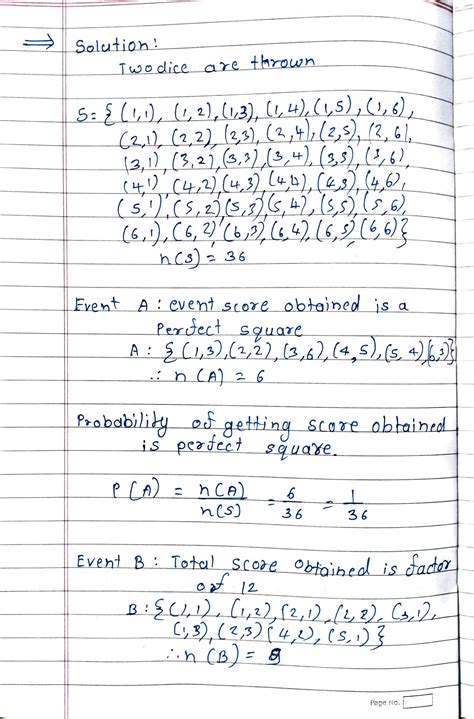 ⇒ Solution:
Two dice are thrown
S= { (1,1), (1,2), (1,3), (1,4), (1,5), (1,6),
(2,1), (2,2) (2,3), (2,4), (2,5), (2,6),
(3,1), (3,2), (3,3), (3,4), (3,5) (3,6),
(4,1) (4,2) (4,3), (4,4), (4,5), (4,6),
(5,1), (5,2) (5,3) (5,4), (5,5) (5,6)
(6,1), (6,2) (6,3) (6,4) (6,5) (6,6)}
n(S) = 36
Event A : event score obtained is a
Perfect square
A : { (1,3), (2,2), (3,6), (4,5), (5,4) (6,3)}
∴ n (A) = 6
Probability of getting score obtained
is perfect square.
P (A) = n(A)/n(S) = 6/36 = 1/36
Event B : Total score obtained is factor
of 12
B : { (1,1), (1,2), (2,1), (2,2), (3,1),
(1,3), (2,3) (4,2), (5,1) }
∴ n (B) =
Page No.